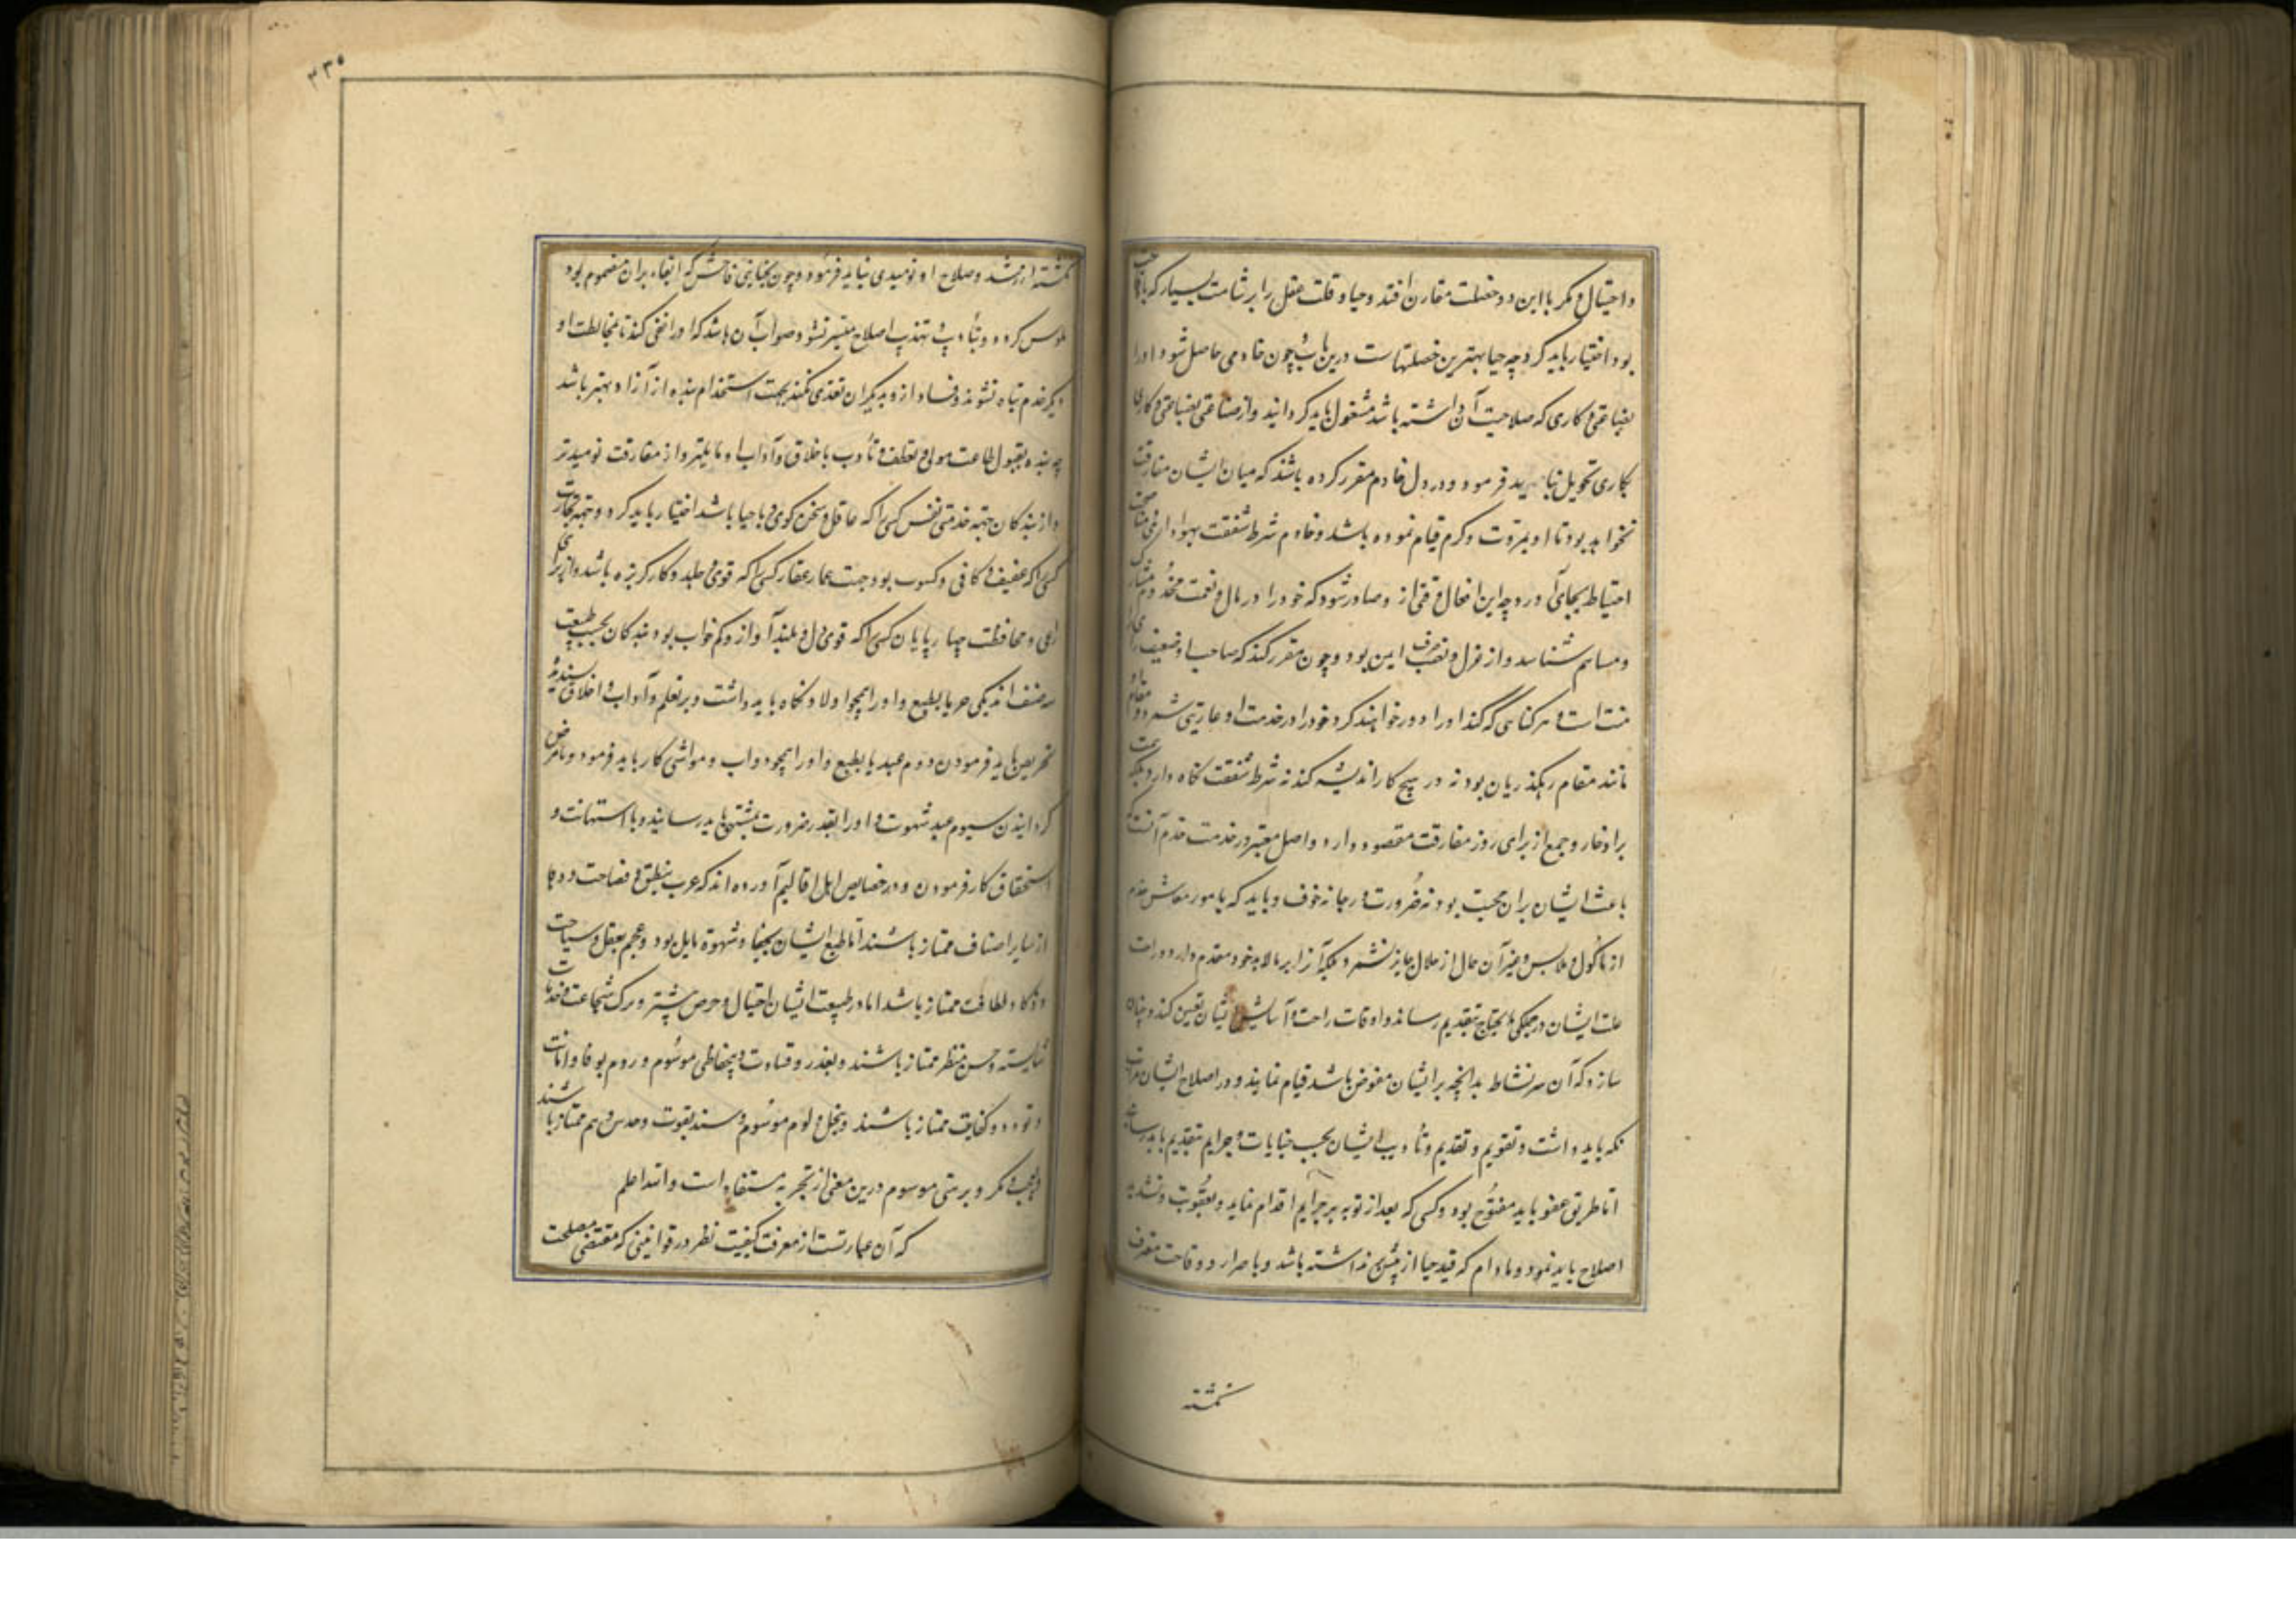 و احتیال و مکر با این دو خصلت مقارن افتد و حیا و قلت عقل را بر شهامت بسیار که با
بود اختیار باید کرد چه حیا بهترین خصلتهاست درین باب و چون خادمی حاصل شود او را
بصناعتی و کاری که صلاحیت آن داشته باشد مشغول باید گردانید و از صناعتی بصناعتی و کاری
بکاری تحویل نباید فرمود و در دل خادم مقرر کرده باشند که میان ایشان مفارقت
نخواهد بود تا او بمروت و کرم قیام نموده باشد و خادم شرط شفقت و هواداری و مناصحت
احتیاط بجای آورد چه این افعال وقتی از و صادر شود که خود را در مال و نعمت مخدوم مشارک
و مساهم شناسد و از عزل و تصرف ایمن بود و چون مقرر کند که صاحب او ضعیف رای
منت است و بهر گناهی که کند او را دور خواهند کرد خود را در خدمت او عاریتی شمرد و مقام او
مانند مقام رهگذریان بود نه در هیچ کار اندیشه کند نه شرط شفقت نگاه دارد بلکه همت
بر ادخار و جمع از برای روز مفارقت مقصود دارد و اصل معتبر در خدمت خدم آنست که
باعث ایشان بران محبت بود نه ضرورت و رجا نه خوف و باید که بامور معاش خدم
از ماکول و ملابس و غیر آن حال از ملال جایز نشمرد بلکه آنرا بر مالابد خود مقدم دارد و ازاحت
علت ایشان در جملگی ما یحتاج بتقدیم رساند و اوقات راحت و آسایش ایشان تعیین کند و چنان
سازد که آن سر نشاط بدانچه بر ایشان مفوض باشد قیام نمایند و در اصلاح ایشان مراتب
نگه باید داشت و تقویم و تقدیم و تأدیب ایشان بحسب جنایات و جرایم بتقدیم باید رسانید
اما طریق عفو باید مفتوح بود و کسی که بعد از توبه بر جرایم اقدام نماید و بعقوبت و تشدید
اصلاح باید نمود و مادام که قید حیا از پیش نداشته باشد و باصرار و وقاحت معرف
نگشته
۲۳۵
نگشته از رشد و صلاح او نومیدی نباید فرمود و چون بجنایتی فاحش که ابقاء بران مذموم بود
ملوس گردد و بتأدیب و تهذیب اصلاح میسر نشود صواب آن باشد که او را نفی کند تا بمخالطت او
دیگر خدم تباه نشوند و فساد از و بدیگران تعدی نکند بجهت استخدام بنده از آزاد بهتر باشد
چه بنده بقبول طاعت مولی و تعطف و تأدب باخلاق و آداب او مایلتر و از مفارقت نومیدتر
و از بندگان جهة خدمتی نفس کسی را که عاقل و سخن گوی و با حیا باشد اختیار باید کرد و جهة تجارت
کسی را که عفیف و کافی و کسوب بود جهت عمار عقار کسی را که قوی و جلد و کار کرنده باشد و از برای
راعی و محافظت چهارپایان کسی را که قوی دل و بلند آواز و کم خواب بود بندگان بحسب طبیعت
سه صنف اند یکی حر بالطبع و او را همچو اولاد نگاه باید داشت و بر تعلم و آداب و اخلاق پسندیده
تحریض باید فرمودن دوم عبد بالطبع و او را همچو دواب و مواشی کار باید فرمود و مرتاض
گردانیدن سیوم عبد شهوت و او را بقدر ضرورت بمشتهی باید رسانید و با استهانت و
استحقاق کار فرمودن و در خصایص اهل اقالیم آورده اند که عرب بنطق و فصاحت و دها
از سایر اصناف ممتاز باشند اما طبع ایشان بجفا و شهوة مایل بود و عجم بعقل و سیاحت
و ذکاء و لطافت ممتاز باشد اما در طبیعت ایشان احتیال و حرص بیشتر و ترک شجاعت و خدمات
شایسته و حسن منظر ممتاز باشند و بغدر و قساوت و بیحفاظی موسوم و روم بوفا و امانت
و تودد و کفایت ممتاز باشند و ببخل و لوم موسوم و سند بقوت و حدس و هم ممتاز باشند
و بعجب و مکر و برستی موسوم درین معنی از تجربه مستفاد است و الله اعلم
که آن عبارتست از معرفت کیفیت نظر در قوانینی که مقتضی مصلحت